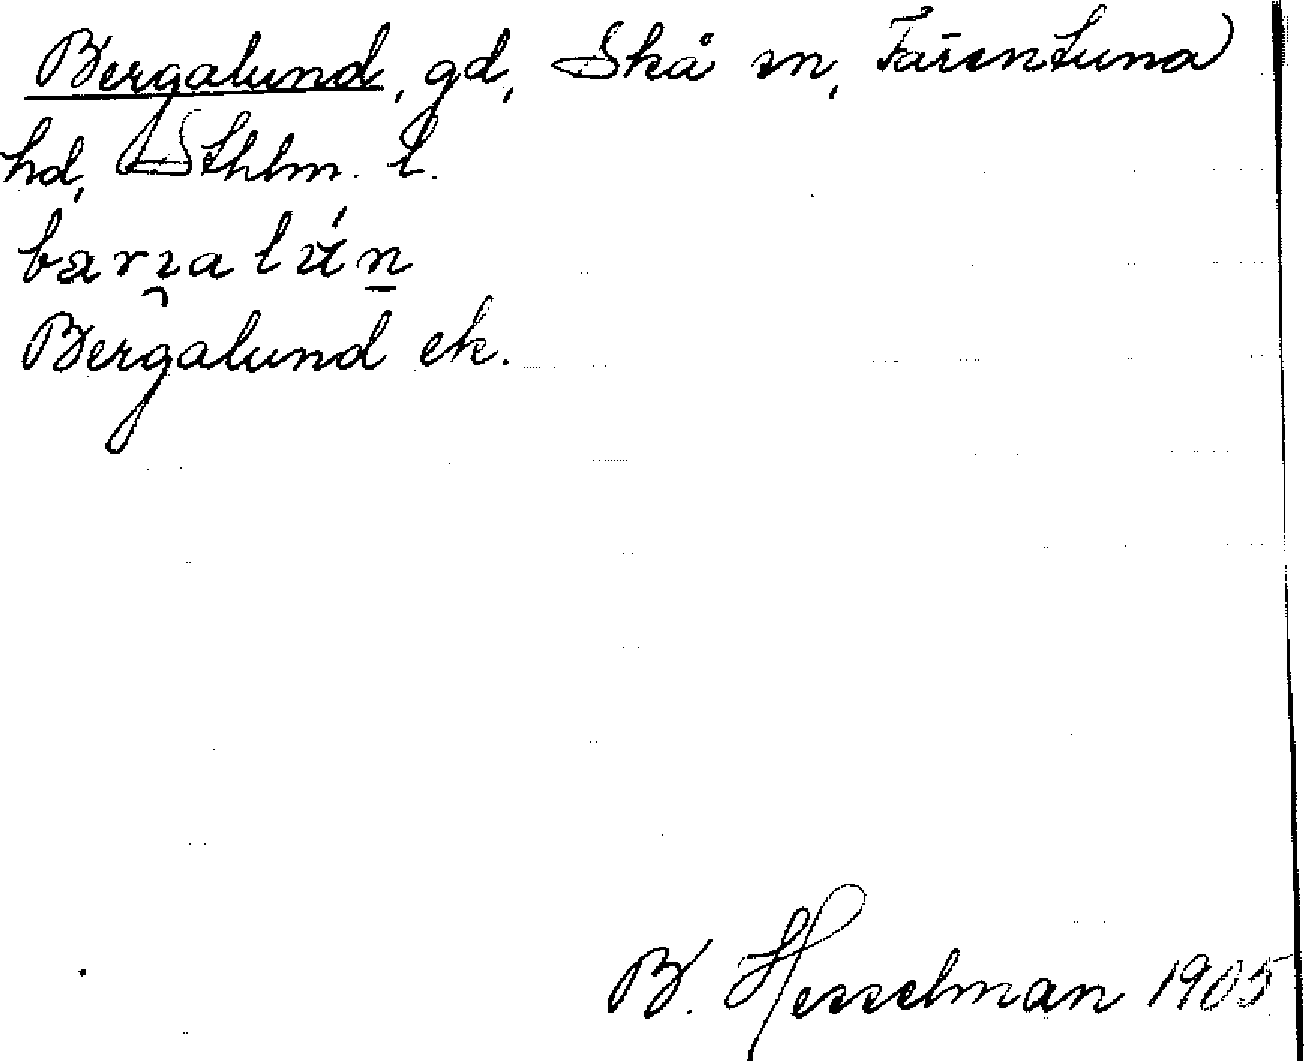 Bergalund, gd, Skå sn, Färentuna
hd, Sthlm. l.
Bergalund ek.
B. Hesselman 1905